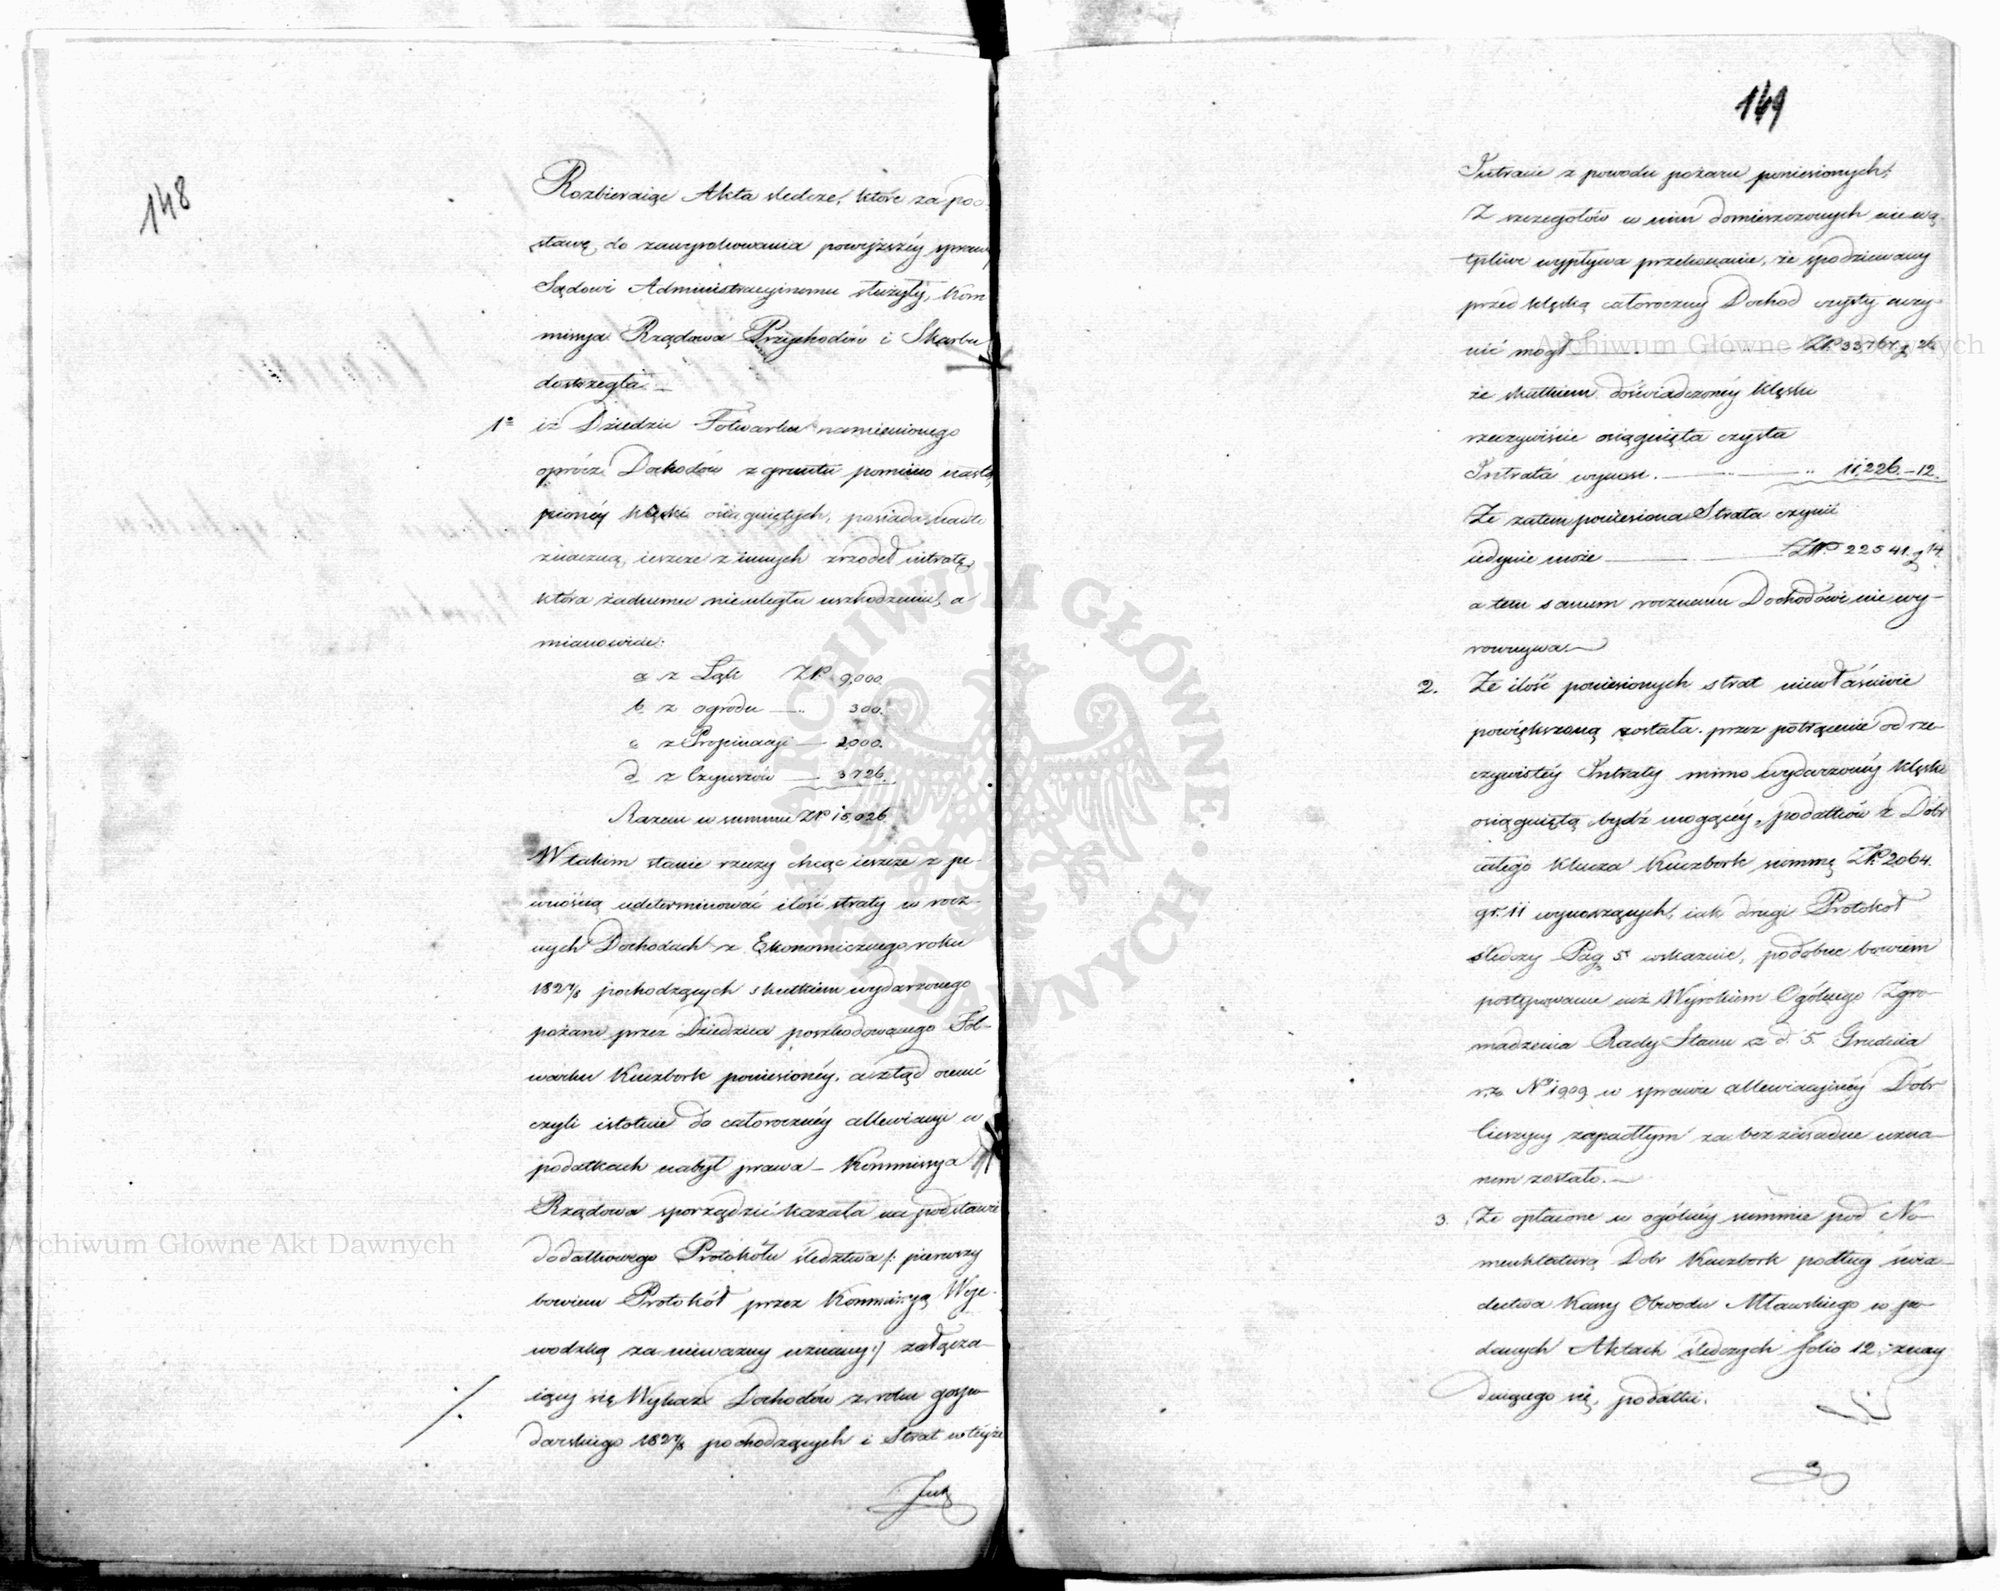 148
Rozbieraiąc Akta śledcze, które za pod
stawę do zawyrokowania powyższéy sprawy
Sądowi Administracyjnemu służyły, Kom
missya Rządowa Przychodów i Skarbu
dostrzegła. —
1o iż Dziedzic Folwarku namienionego
oprócz Dochodów z gruntu pomimo nastą
pionéy klęski osiągniętych, posiada nader
znaczną ieszcze z innych zrzodeł intratę,
która żadnemu nieuległa uszkodzeniu, a
mianowicie:
a z Łąk ZłP 9,000.
b z ogrodu — „ 300.
c z Propinacyi — 2,000.
d z Czynszów — 3726.
Razem w summie ZłP 15,026
W takim stanie rzeczy chcąc ieszcze z pe-
wnością udeterminować ilość straty w rocz-
nych Dochodach z Ekonomicznego roku
1827/8 pochodzących skutkiem wydarzonego
pożaru przez Dziedzica poszkodowanego Fol-
warku Kuczbork poniesionéy, a ztąd ocenić
czyli istotnie do całorocznéy allewiacyi w
podatkach nabył prawa — Kommissya
Rządowa sporządzić kazała na podstawie
dodatkowego Protokółu śledztwa /: pierwszy
bowiem Protokół przez Kommissyą Woje-
wodzką za nieważny uznany :/ załącza-
iący się Wykaz Dochodów z roku gospo-
darskiego 1827/8 pochodzących i Strat w téyże
Int
149
Intracie z powodu pożaru poniesionych,
Z szczegółów w nim domieszczonych niewą-
tpliwe wypływa przekonanie, że spodziewany
przed klęską całoroczny Dochod czysty uczy-
nić mogł — ZłP 33,767 g 26
że skutkiem doświadczonéy klęski
rzeczywiście osiągnięta czysta
Intrata wynosi. — „ — „ 11,226.—12.
Że zatem poniesiona Strata czynić
iedynie może — ZłP. 22541. g 14.
a tem samem rocznemu Dochodowi nie wy-
rownywa. —
2. Że ilość poniesionych strat niewłaściwie
powiększoną została przez potrącenie od rze-
czywistéy Intraty mimo wydarzonéy klęski
osiągniętą bydź mogącéy, podatków z Dóbr
całego Klucza Kuczbork summę ZłP. 2064.
gr. 11 wynoszących, iak drugi Protokół
śledczy Pag 5 wskazuie, podobne bowiem
postępowanie iuż Wyrokiem Ogólnego Zgro-
madzenia Rady Stanu z d. 5. Grudnia
r.z. No 1909 w sprawie allewiacyinéy Dóbr
zapadłym za bezzasadne uzna-
nem zostało. —
3. Że opłacone w ogólnéy summie pod No-
menklaturą Dóbr Kuczbork podług świa-
dectwa Kassy Obwodu Mławskiego w po-
danych Aktach śledczych folio 12. znay
duiącego się, podatki.